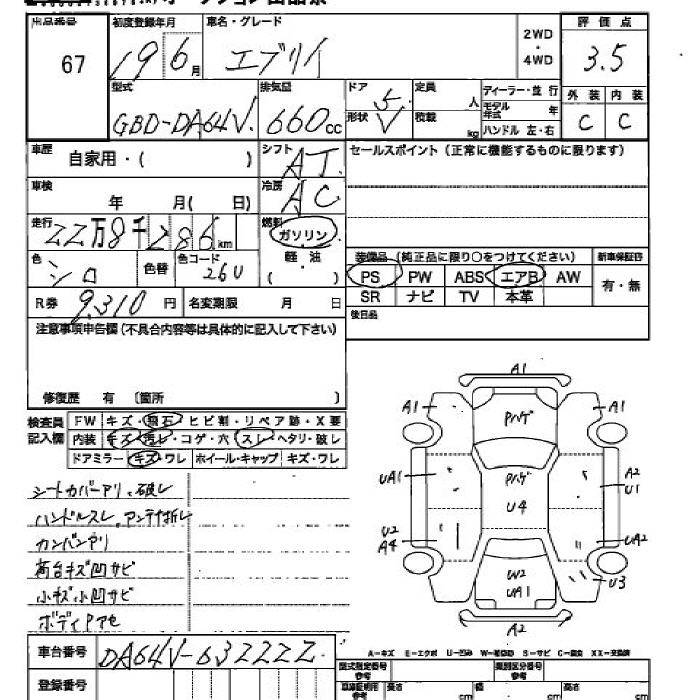 出品番号 67
初度登録年月 19 6月
車名・グレード エブリイ
2WD・4WD
評価点 3.5
型式 GBD-DA64V.
排気量 660cc
ドア 5
形状 V
定員 人
積載 kg
ディーラー・並行
モデル年式 年
ハンドル 左・右
外装 C
内装 C
車歴 自家用・( )
シフト AT.
セールスポイント(正常に機能するものに限ります)
車検 年 月( 日)
冷房 AC
走行 22万8千286km
燃料 ガソリン
軽・油
( )
色 シロ 色替 色コード 26U
装備品 (純正品に限り○をつけてください) 新車保証書
PS PW ABS エアB AW 有・無
SR ナビ TV 本革
R券 9,310円 名変期限 月 日
後日品
注意事項申告欄(不具合内容等は具体的に記入して下さい)
修復歴 有 〔箇所 〕
検査員記入欄
FW キズ・飛石・ヒビ割・リペア跡・X要
内装 キズ・汚レ・コゲ・穴・スレ・ヘタリ・破レ
ドアミラー キズ・ワレ ホイール・キャップ キズ・ワレ
シートカバーアリ、破レ
ハンドルスレ,アンテナ折レ
カンバンアリ
荷台キズ凹サビ
小キズ小凹サビ
ボディPアセ
A1
A1 Pハゲ A1
UA1 Pハゲ A2
U1
U4
U2
A4 UA2
W2
UA1 U3
A2
A-キズ E-エクボ U-凹み W-補修跡 S-サビ C-腐食 XX-交換済
車台番号 DA64V-632222.
登録番号
型式指定番号 参考
類別区分番号 参考
長さ cm 幅 cm 高さ cm